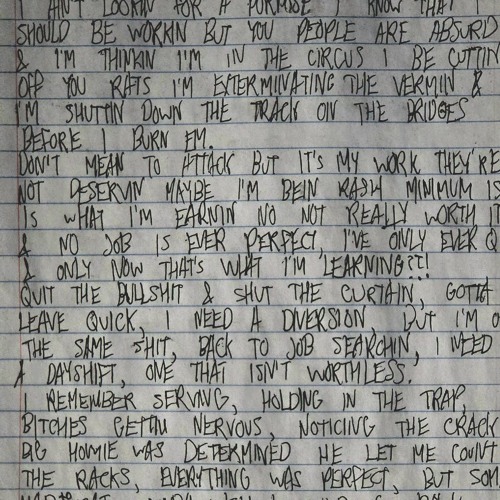 AIN'T LOOKIN FOR A PURPOSE I KNOW THAT I
SHOULD BE WORKIN BUT YOU PEOPLE ARE ABSURD
& I'M THINKIN I'M IN THE CIRCUS I BE CUTTIN
OFF YOU RATS I'M EXTERMINATING THE VERMIN &
I'M SHUTTIN DOWN THE TRACK ON THE BRIDGES
BEFORE I BURN EM.
DON'T MEAN TO ATTACK BUT IT'S MY WORK THEY'RE
NOT DESERVIN MAYBE I'M BEIN RASH MINIMUM IS
IS WHAT I'M EARNIN NO NOT REALLY WORTH IT
& NO JOB IS EVER PERFECT, I'VE ONLY EVER Q
& ONLY NOW THAT'S WHAT I'M LEARNING??!
QUIT THE BULLSHIT & SHUT THE CURTAIN, GOTTA
LEAVE QUICK, I NEED A DIVERSION, BUT I'M O
THE SAME SHIT, BACK TO JOB SEARCHIN, I NEED
A DAYSHIFT, ONE THAT ISN'T WORTHLESS.
I REMEMBER SERVING, HOLDING IN THE TRAP,
BITCHES GETTIN NERVOUS, NOTICING THE CRACK
BIG HOMIE WAS DETERMINED HE LET ME COUNT
THE RACKS, EVERYTHING WAS PERFECT, BUT SOM